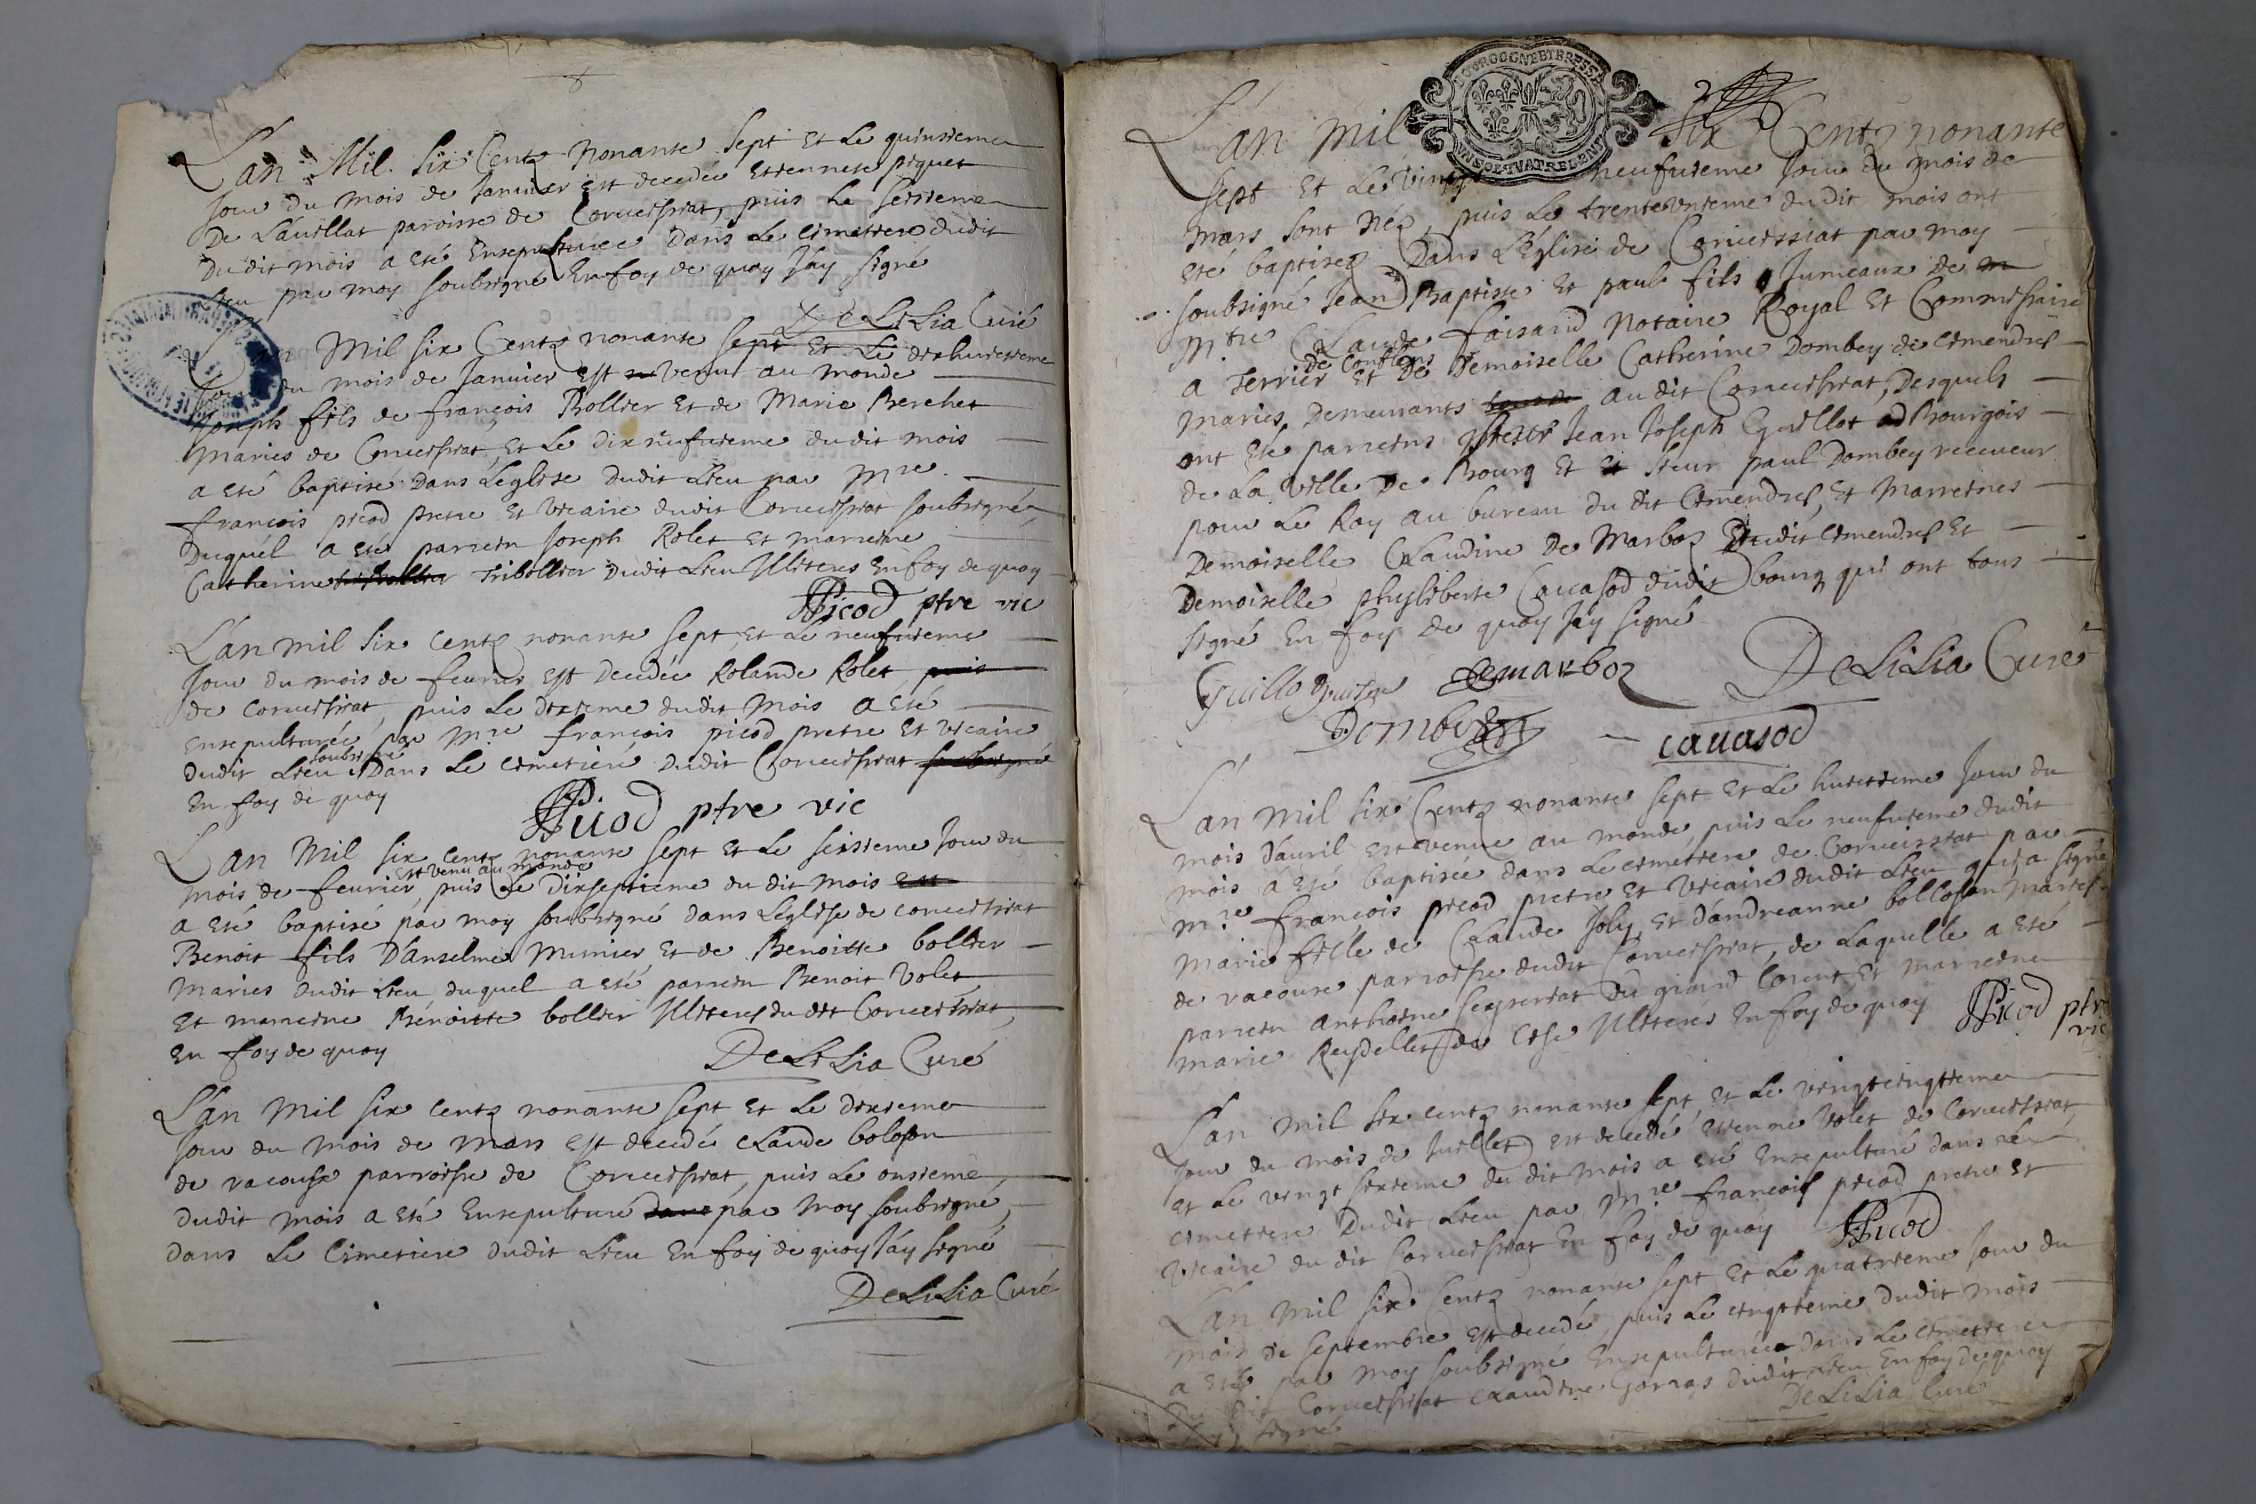 L'an Mil Six Centz Nonante Sept Et Le quinsieme
Jour du mois de Janvier Est decedée Etiennete piquet
De Lavillat paroisse de Corueissiat, puis Le Seisieme
Du dit mois a eté Ensepulturée Dans Le Cimetiere dudit
Lieu par moy soubsigné En foy de quoy Jay signé
DeLiLia Curé
L'an Mil six Centz nonante sept Et Le dixhuictieme
Jour du mois de Janvier Est venu au monde
Joseph fils de françois Bollier Et de Marie Berchet
Maries de Coruessiat, Et Le Dix neufvieme dudit mois
a eté baptisé Dans Léglise dudit Lieu par Mre
françois picod pretre Et vicaire dudit Coruessiat soubsigné
Duquel a eté parrein Joseph Rolet Et marreine
Catherine Tribollier dudit Lieu Illiteres En foy de quoy
Picod ptre vic
L'an mil six centz nonante sept, et Le neufvieme
Jour du mois de feurier est decedée Rolande Rolet
de Coruessiat, puis Le dixieme dudit mois a eté
ensepulturée par Mre françois picod pretre et vicaire
soubsigné
dudit Lieu Dans Le cimetiere dudit Coruessiat
En foy de quoy
Picod ptre vic
L'an Mil six centz nonante sept et Le seisieme Jour du
est venu au monde
mois de feurier, puis Le Dixseptieme du dit mois
a eté baptisé par moy soubsigné dans Léglise de Coruessiat
Benoit fils D'anselme Munier Et de Benoitte bollier
maries dudit Lieu, duquel a eté parrein Benoit Volet
Et marreine Benoitte bollier Illiteres du dit Coruessiat,
En foy de quoy
DeLiLia Curé
L'an Mil six centz nonante sept Et Le dixieme
Jour du mois de mars est decedé Claude boloson
de vacouse parroisse de Coruessiat, puis Le onsieme
dudit mois a eté Ensepulturé par moy soubsigné
dans Le Cimetiere dudit Lieu En foy de quoy Jáy signé
DeLiLia Curé
BOVRGOGNE ET BRESSE
L'an mil Six Centz nonante
sept et Le vingt neufvieme Jour du mois de
mars sont Néz, puis Le trente unieme dudit mois ont
eté baptisez Dans L'Eglise de Coruessiat par moy
soubsigné Jean Baptiste Et paul fils Jumeaux de
Mtre Claude foisard Notaire Royal Et Commissaire
de Conflens
a Terrier Et De Demoiselle Catherine Dombey de cimendres
maries, Demeurants audit Coruessiat, Desquels
ont eté parreins Jean Joseph Eguillot Bourgois
de La Ville De Bourg Et Sieur paul Dombey receveur
pour Le Roy au bureau du dit Cimendres, Et Marreines
Demoiselle Claudine De Marboz dudit Cimendres Et
Demoiselle phyliberte Cavasod dudit bourg qui ont tous
signé En foy de quoy Jáy signé
Demarboz DeLiLia Curé
Dombey cavasod
L'an mil six Centz nonante sept Et Le huictieme Jour du
mois d'avril est venue au monde, puis Le neufvieme dudit
mois a eté baptisée dans Le cimétiere de Coruessiat par
Mre françois picod pretre Et vicaire dudit Lieu qui a signé
Marie fille de Claude Joly, Et d'andreanne boloson Maries
de vacouse parroisse dudit Coruessiat, de Laquelle a eté
parrein anthoine du grand Corent, Et marreine
marie Reydellet de Cise Illiterés En foy de quoy Picod ptre
vic
L'an mil six centz nonante sept, Et Le vingtcinqtieme
Jour du mois de Juillet est decedé etienne Volet de Coruessiat
et Le vingt sixieme du dit mois a eté Ensepulturé dans Le
cimetiere Dudit Lieu par Mre françois picod pretre Et
vicaire du dit Coruessiat En foy de quoy Picod
L'an mil six Centz nonante sept Et Le quatrieme Jour du
mois de septembre est decedé, puis Le cinqtieme dudit mois
a eté par moy soubsigné Ensepulturée dans Le cimetiere
Du dit Coruessiat Claudine Gorras dudit Lieu En foy de quoy
signé DeLiLia Curé